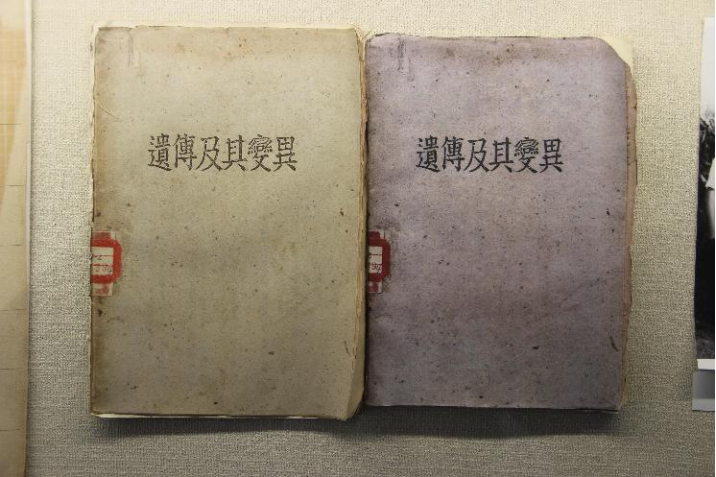 遺傳及其變異
遺傳及其變異